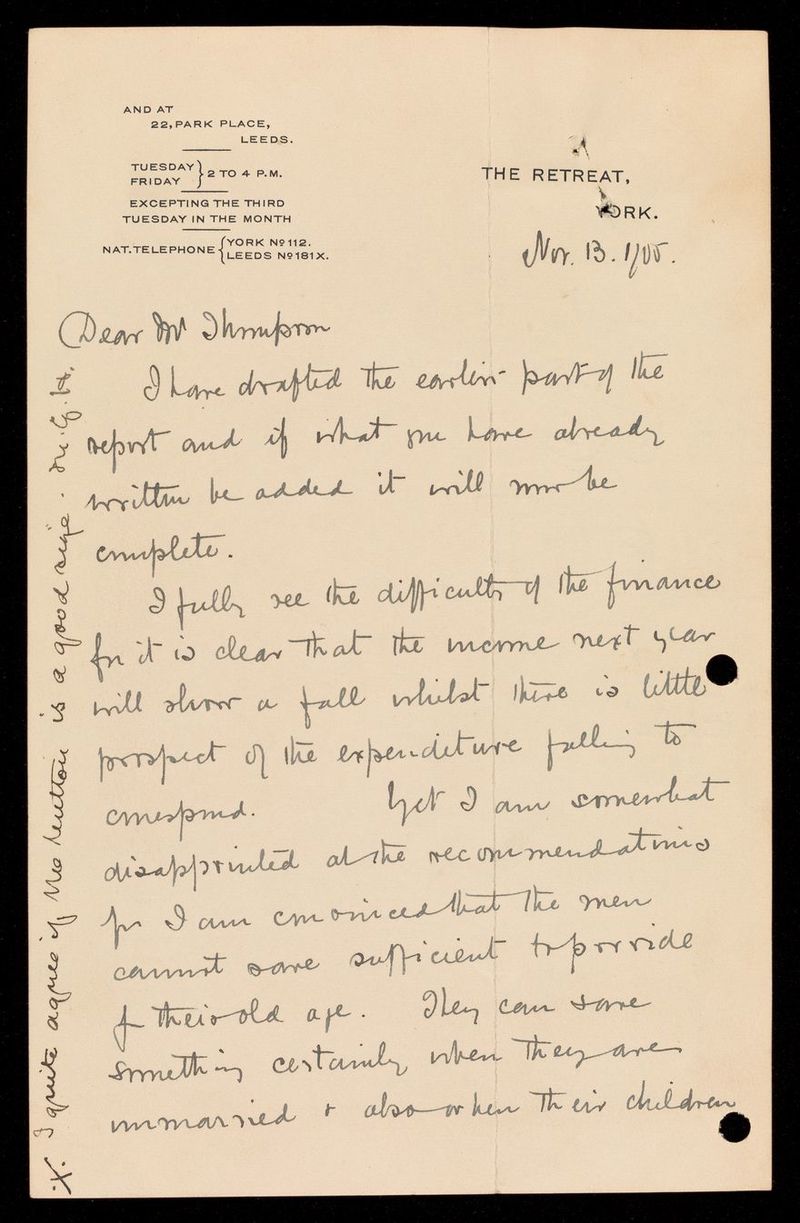 AND AT
22, PARK PLACE,
LEEDS.
TUESDAY
FRIDAY } 2 TO 4 P.M.
EXCEPTING THE THIRD
TUESDAY IN THE MONTH
NAT. TELEPHONE { YORK Nº 112.
LEEDS Nº 181X.
THE RETREAT,
YORK.
Nov. 13. 1905.
Dear Mr Thompson
I have drafted the earlier part of the
report and if what you have already
written be added it will now be
complete.
I fully see the difficulty of the finance
for it is clear that the income next year
will show a fall whilst there is little
prospect of the expenditure falling to
correspond. Yet I am somewhat
disappointed at the recommendations
for I am convinced that the men
cannot save sufficient to provide
for their old age. They can save
something certainly when they are
unmarried & also when their children
X. I quite agree if Mrs is a good sign.